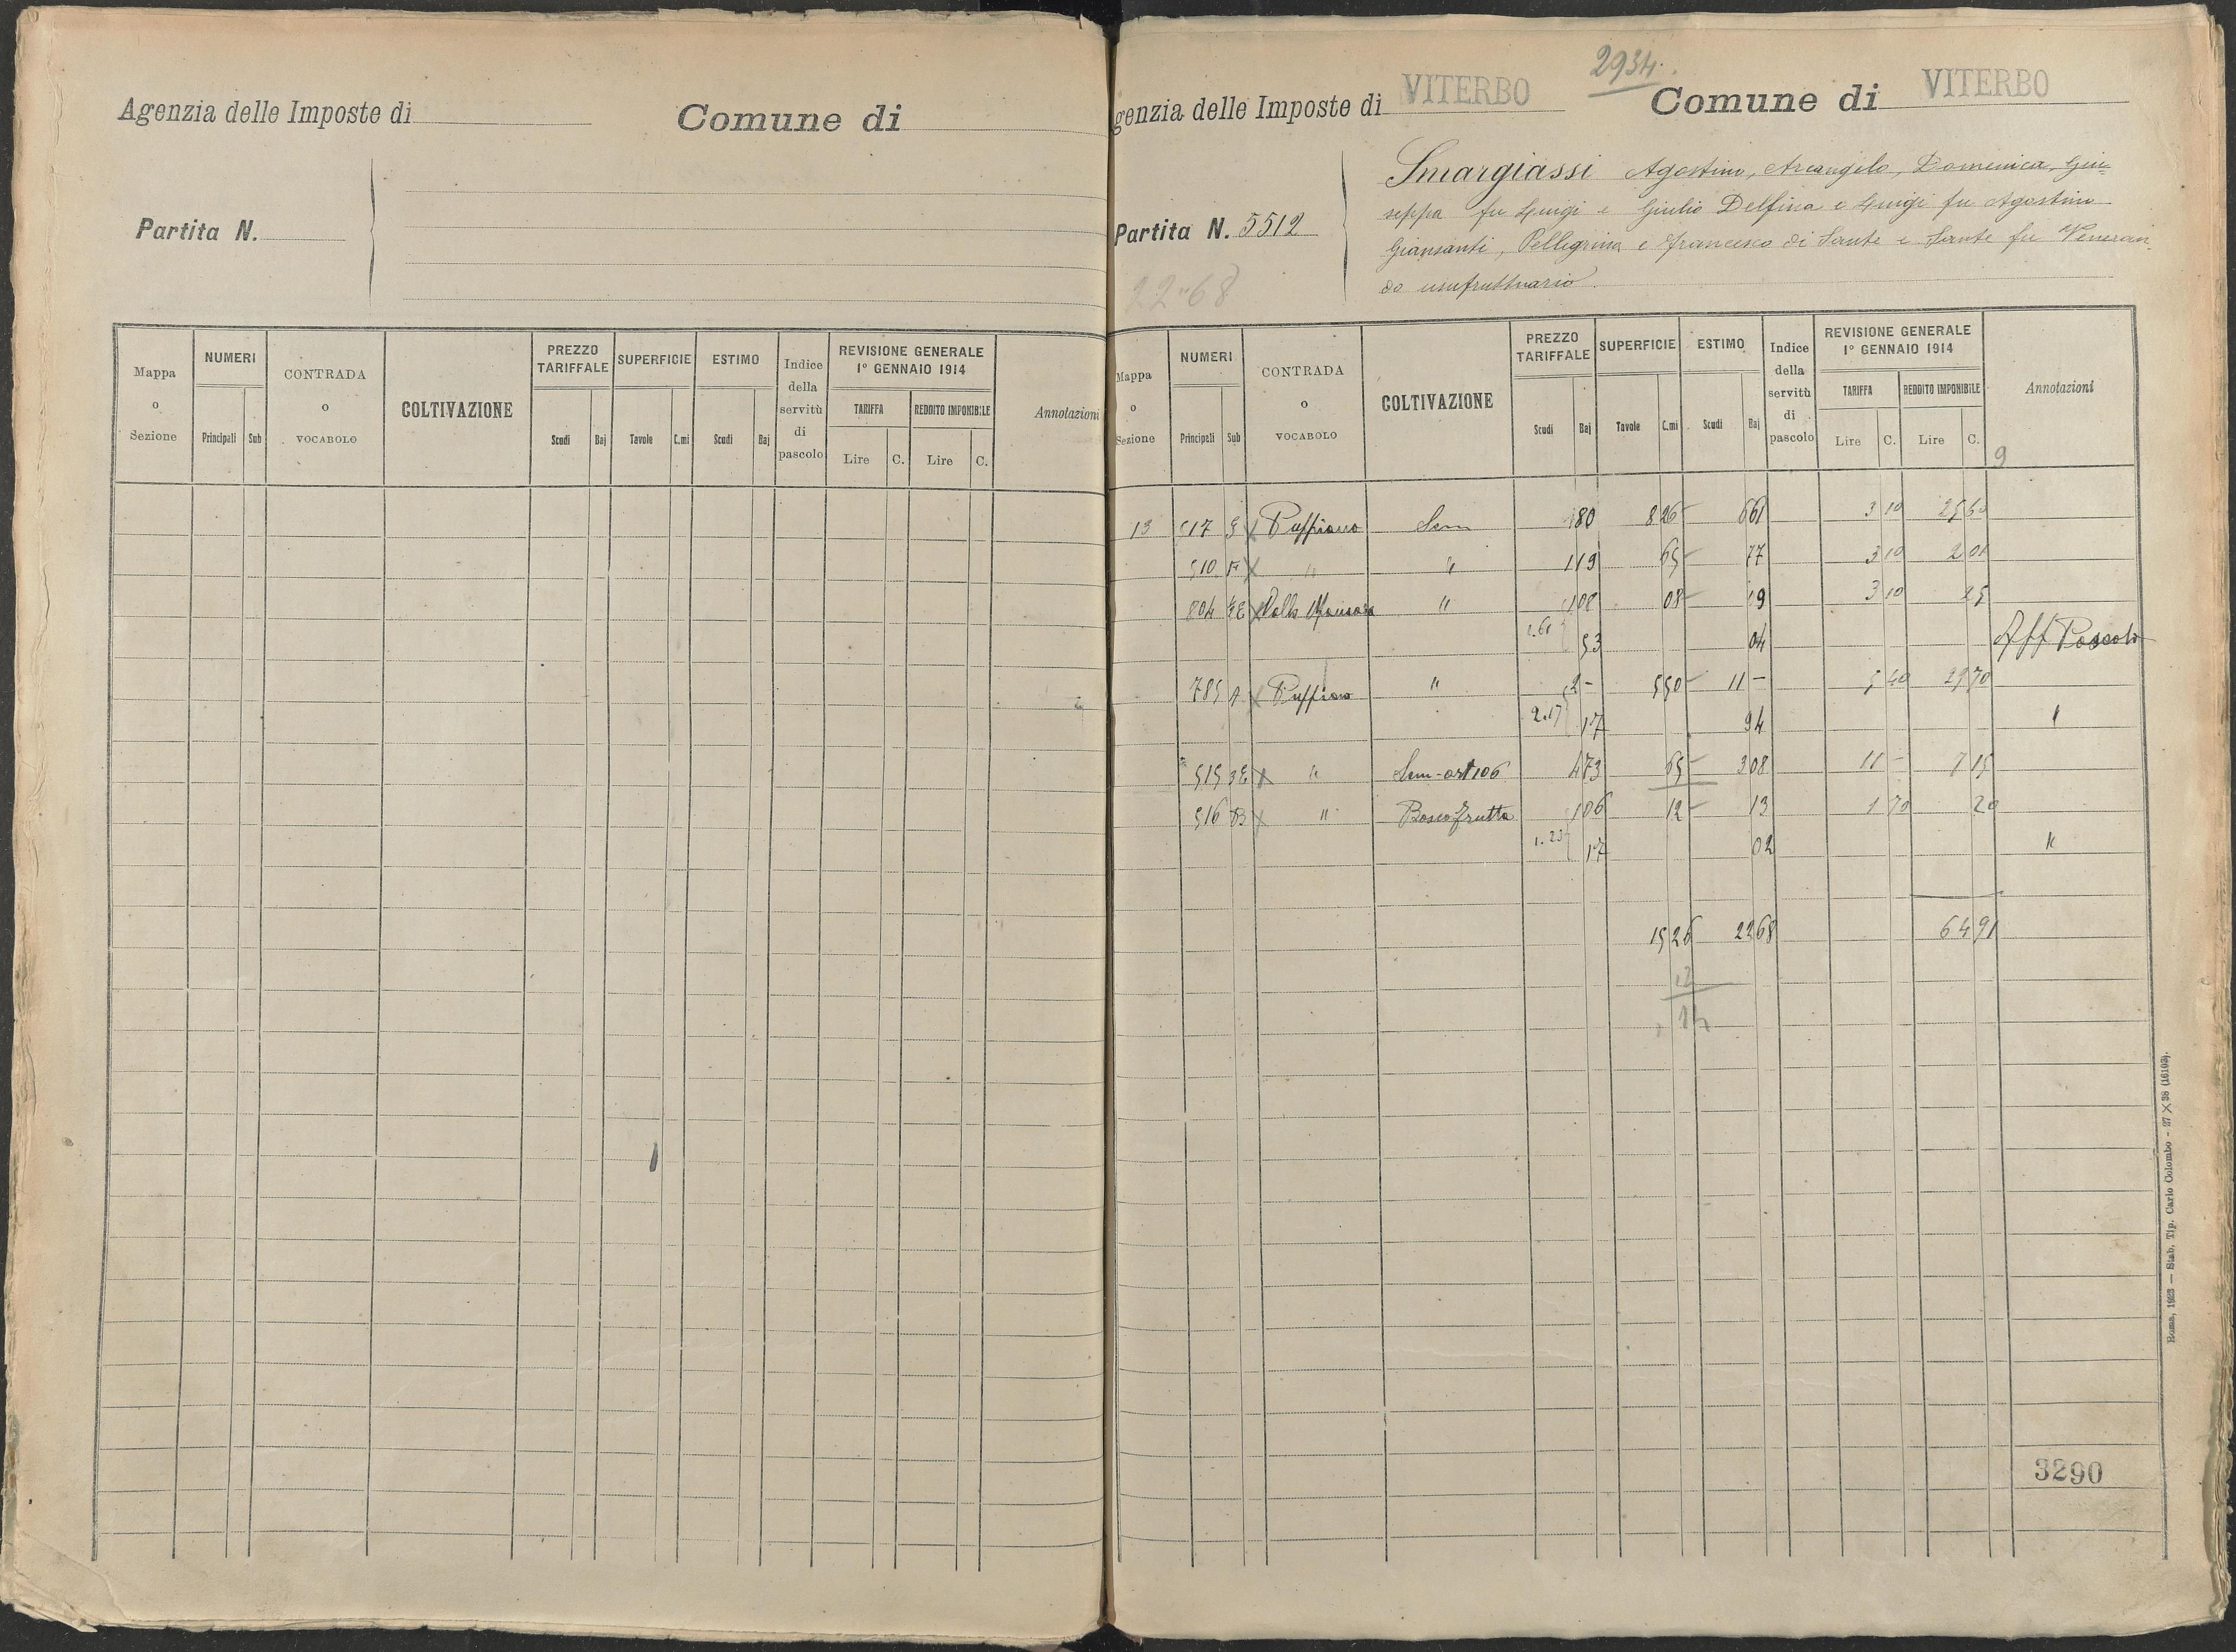 Agenzia delle Imposte di
Comune di
Partita N.
Mappa o Sezione
NUMERI
Principali
Sub
CONTRADA o VOCABOLO
COLTIVAZIONE
PREZZO TARIFFALE
Scudi
Baj
SUPERFICIE
Tavole
C.mi
ESTIMO
Scudi
Baj
Indice della servitù di pascolo
REVISIONE GENERALE
1° GENNAIO 1914
TARIFFA
REDDITO IMPONIBILE
Lire
C.
Lire
C.
Annotazioni
2934
genzia delle Imposte di VITERBO
Comune di VITERBO
Smargiassi Agostino, Arcangelo, Domenica, Giu=
seppa fu Luigi e Giulio Delfina e Luigi fu Agostino
Partita N. 5512
Giansanti, Pellegrina e Francesco di Sante e Sante fu Veneran
do usufruttuario.
22-68
Mappa o Sezione
NUMERI
Principali
Sub
CONTRADA o VOCABOLO
COLTIVAZIONE
PREZZO TARIFFALE
Scudi
Baj
SUPERFICIE
Tavole
C.mi
ESTIMO
Scudi
Baj
Indice della servitù di pascolo
REVISIONE GENERALE
1° GENNAIO 1914
TARIFFA
REDDITO IMPONIBILE
Lire
C.
Lire
C.
Annotazioni
9
13 517 Sem 80 8 26 6 61 3 10 25 60
510 " " 1 19 65 77 3 10 2 01
804 " 1 08 08 9 3 10 25
1.61 53 04 Aff Pascolo
785 A " 2 - 5 50 11 - 5 40 29 70
2.17 17 94 "
515 " Sem-ort 106 4 73 65 3 08 11 - 7 15
516 B " Bosco frutta 1 06 12 13 1 70 20
1.23 17 02 "
15 26 22 68 64 91
12
3290
Roma, 1923 — Stab. Tip. Carlo Colombo - 27 X 38 (16103).